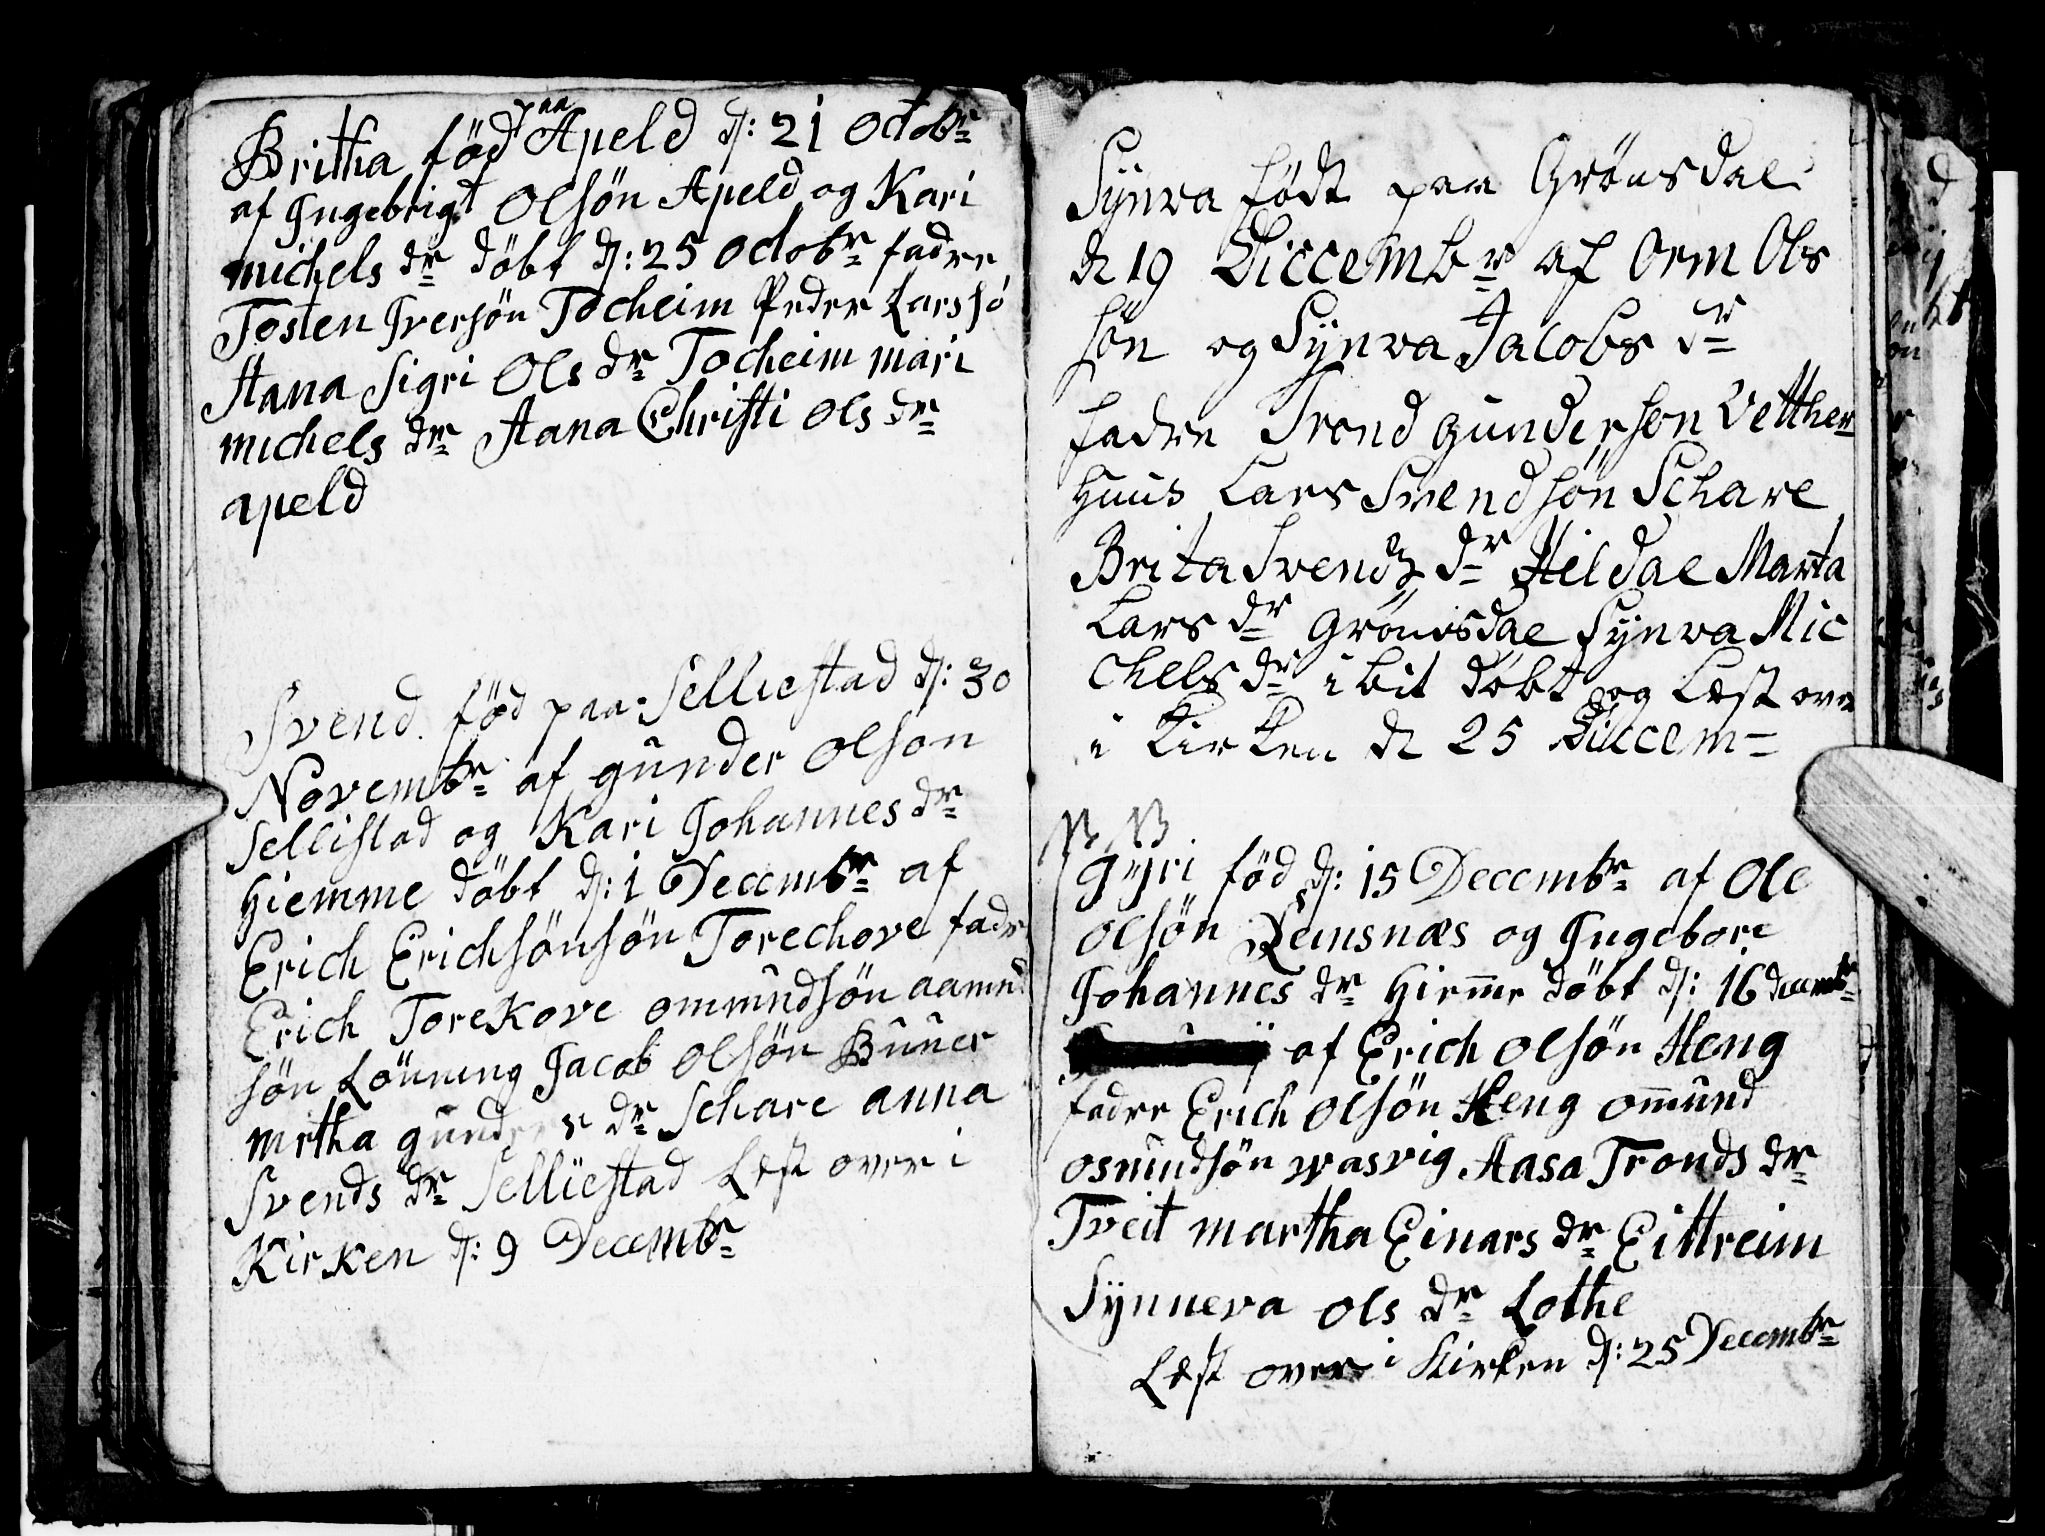 Britha föd paa Apeld d: 21 Octobr
af Ingebrigt Olsön Apeld og Kari
michels dr döbt d: 25 Octobr fadre
Tosten Iversön Tocheim Peder Larssö
Hana Sigri Ols dr Tocheim mari
michels dr Hana Christi Ols dr
apeld
Svend föd paa Selliestad d: 30
Novembr af gunder Olson
Sellistad og Kari Johannes dr
Hiemme döbt d: 1 Decembr af
Erich Erichsönsön Torechove fadr
Erich Torekove omundsön aamnd
sön Lönning Jacob Olsön Buuer
mrtha gunders dr Schare anna
Svends dr Selliestad Læst over i
Kirken d: 9 Decembr
Synva födt paa Grönsdal
d 19 Diccembr af Orm Ols
sön og Synva Jacobs dr
fadre Trond gunderson Vetther
huus Lars Svendsön Schare
Brita Svends dr Hildal Marta
Lars dr Grönsdal Synva Mic
chels dr ibit döbt og Læst over
i Kirken d 25 Diccem
NB
gyri föd d: 15 Decembr af Ole
Olsön Qeinsnæs og Ingebore
Johannes dr Hiemme döbt d: 16 decembr
af Erich Olsön Heng
fadre Erich Olsön Heng Omund
osmundsön wasvig Aasa Tronds dr
Tveit martha Einars dr Eittreim
Synneva Ols dr Lothe
Læst over i Kirken d: 25 Decembr